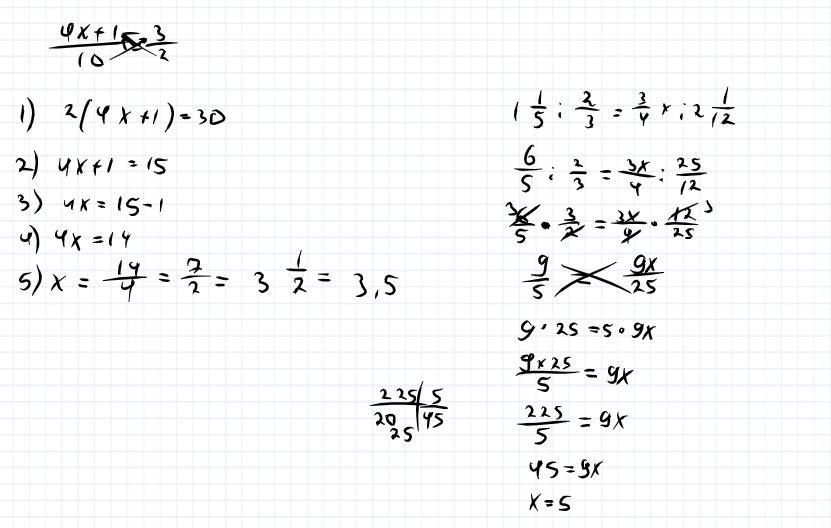 4x+1/10 = 3/2
1) 2(4x+1)=30
2) 4x+1=15
3) 4x=15-1
4) 4x=14
5) x = 14/4 = 7/2 = 3 1/2 = 3,5
225 | 5
20 | 45
25
1 1/5 : 2/3 = 3/4 x : 2 1/12
6/5 : 2/3 = 3x/4 : 25/12
6/5 · 3/2 = 3x/4 · 12/25
9/5 = 9x/25
9 · 25 = 5 · 9x
9x25/5 = 9x
225/5 = 9x
45=9x
x=5